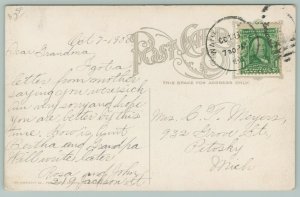 Oct 7 - 1908
Dear Grandma.
I got a
letter from mother
saying you were sick
am very sorry and hope
You are better by this
time. How is Aunt
Bertha and Grandpa
Will write later
Rosa and John
219 Jackson St
Post Card
THIS SPACE FOR ADDRESS ONLY.
OCT
730
Mrs. C. T. Meyers,
932 Grove St,
Petosky
Mich